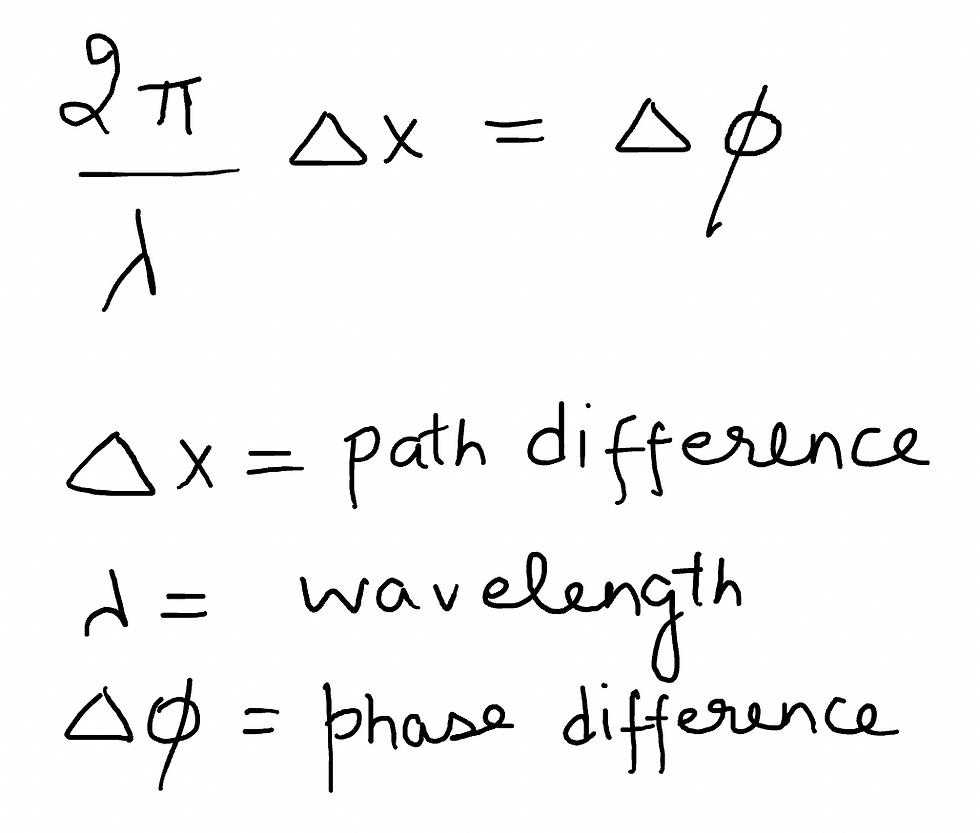 2π
λ Δx = Δϕ
Δx = path difference
λ = wavelength
Δϕ = phase difference